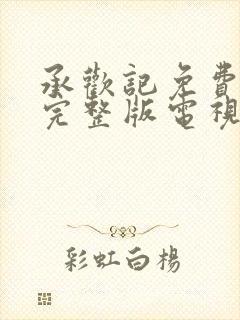 承歡記免費
完整版電視
彩虹白楊